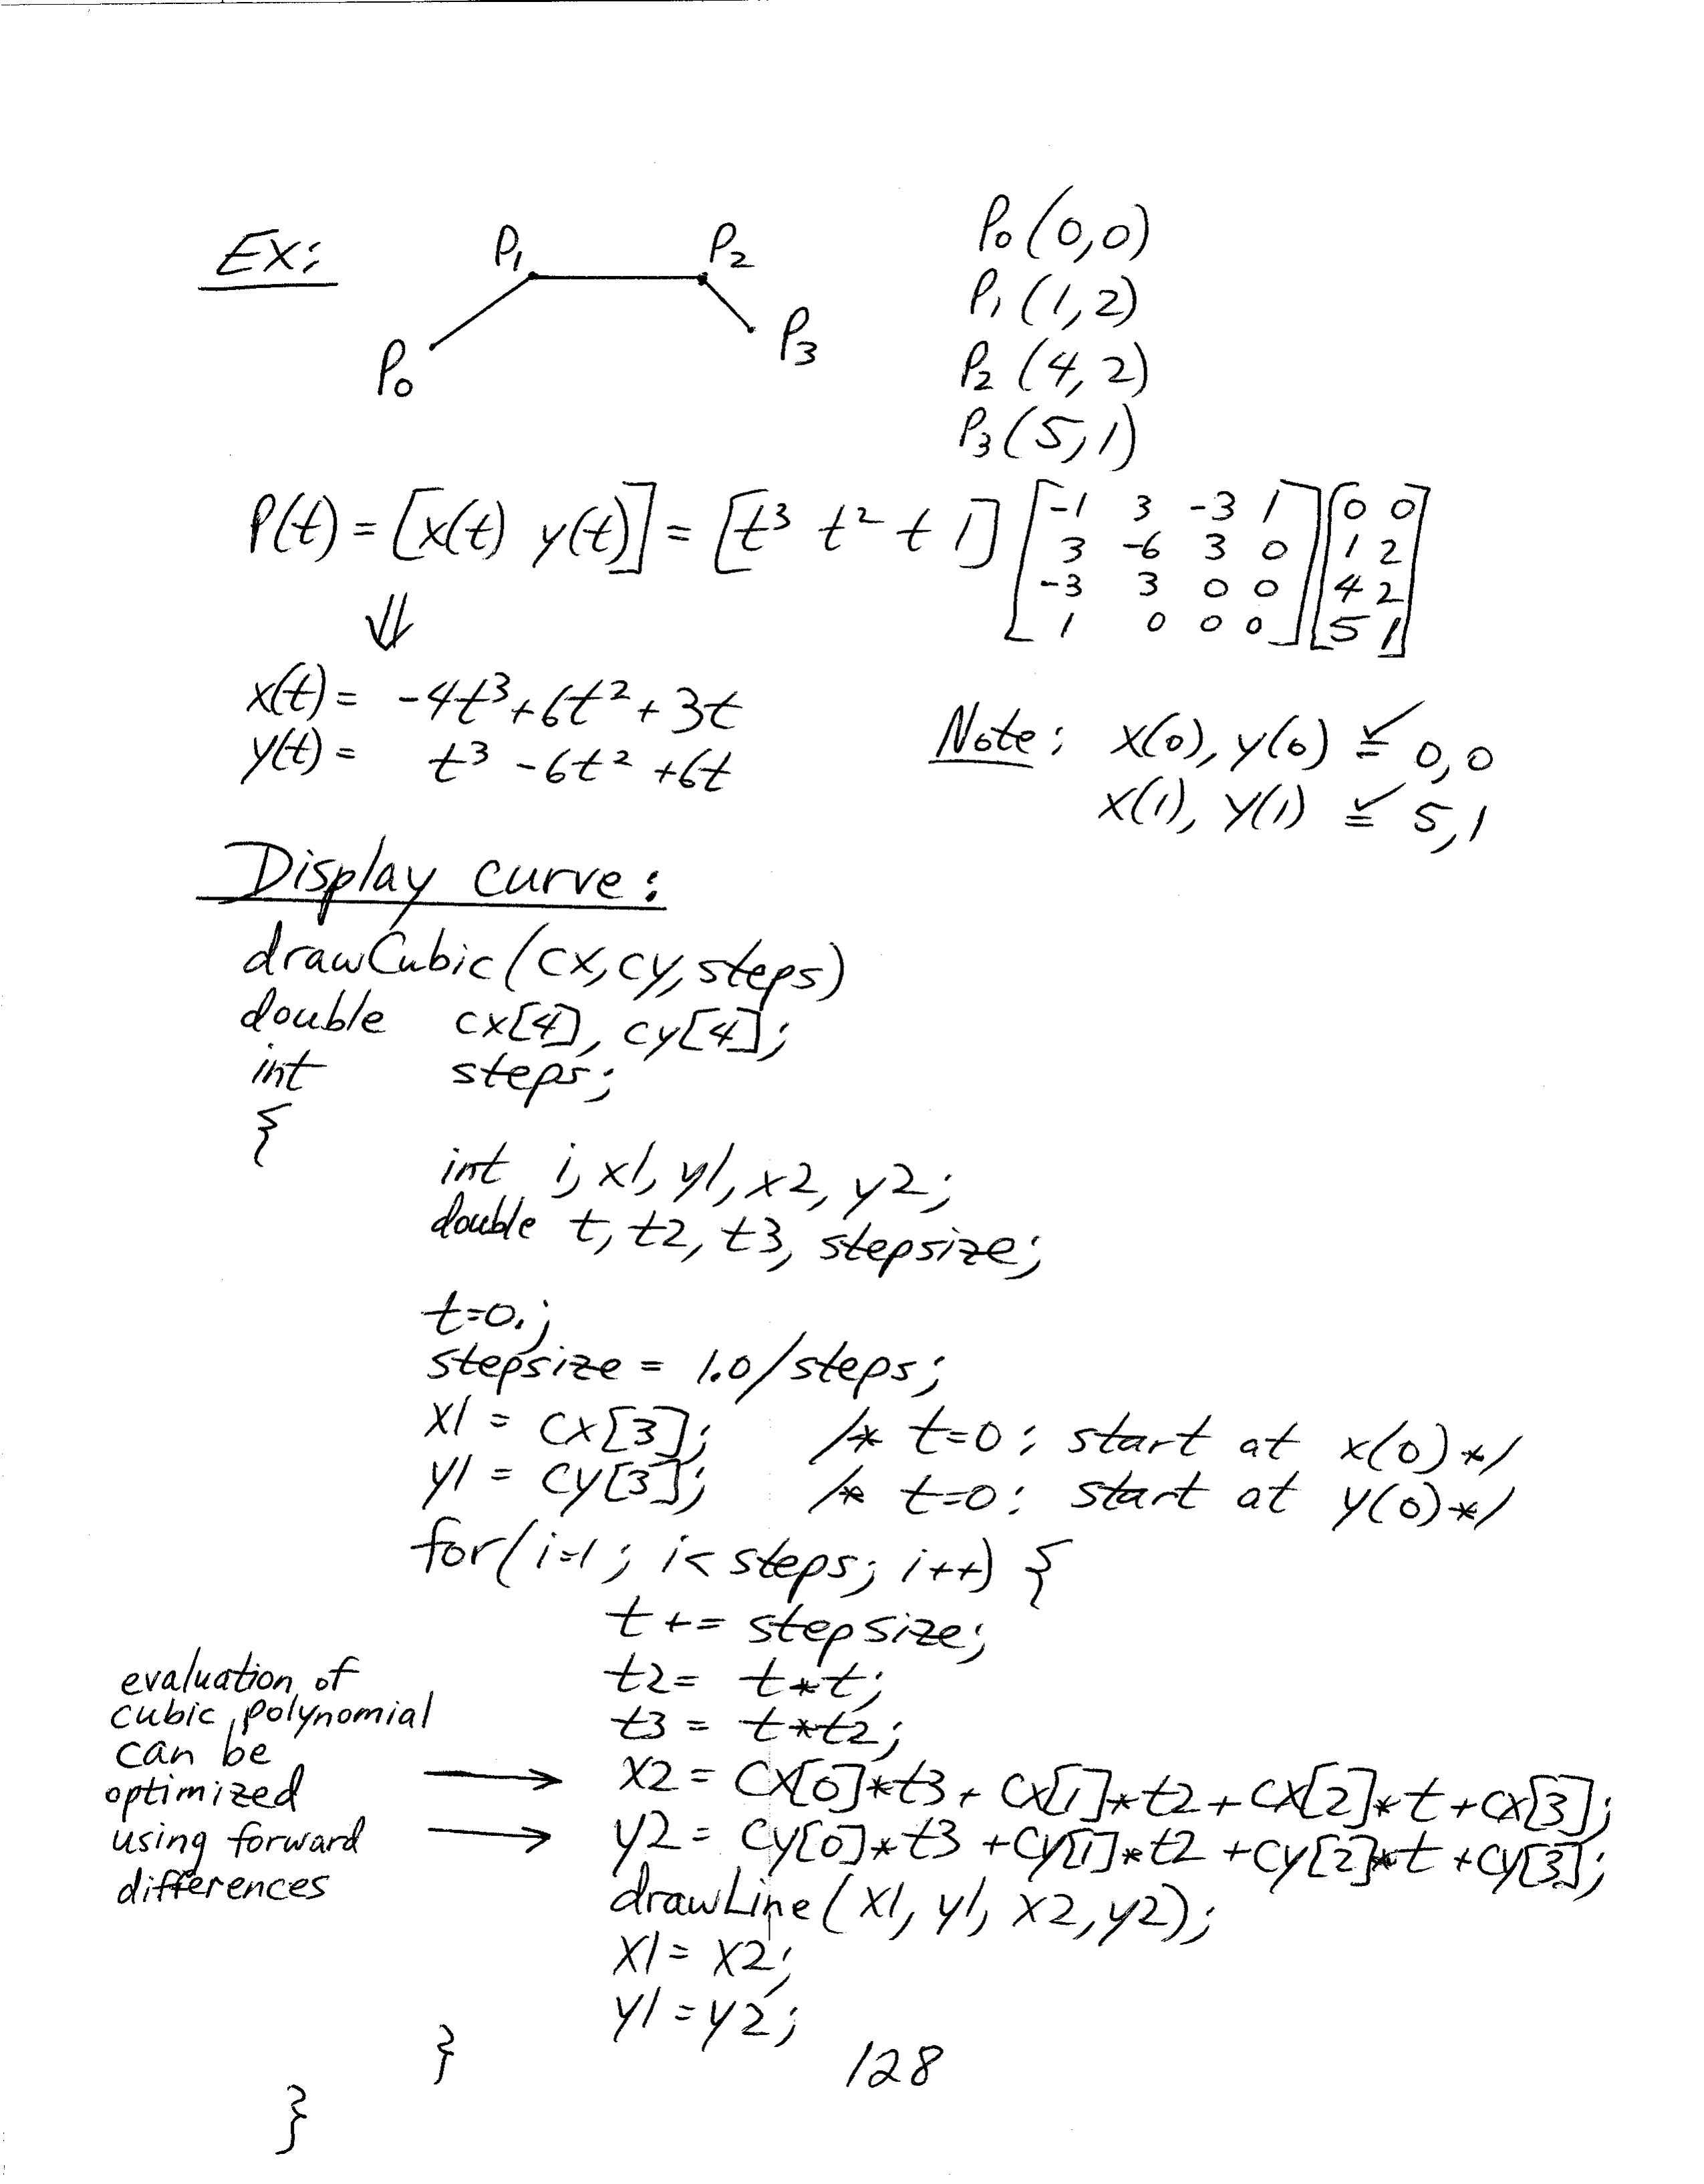 Ex:
P1 P2
P0 P3
P0 (0,0)
P1 (1,2)
P2 (4,2)
P3 (5,1)
P(t) = [x(t) y(t)] = [t³ t² t 1] [-1 3 -3 1] [0 0]
[3 -6 3 0] [1 2]
[-3 3 0 0] [4 2]
[1 0 0 0] [5 1]
⇓
x(t) = -4t³ + 6t² + 3t
y(t) = t³ - 6t² + 6t
Note: x(0), y(0) =✓ 0,0
x(1), y(1) =✓ 5,1
Display curve:
drawCubic(cx,cy,steps)
double cx[4], cy[4];
int steps;
{
int i, x1, y1, x2, y2;
double t, t2, t3, stepsize;
t=0.;
stepsize = 1.0/steps;
x1 = cx[3]; /* t=0: start at x(0) */
y1 = cy[3]; /* t=0: start at y(0) */
for(i=1; i< steps; i++) {
t += stepsize;
t2 = t*t;
t3 = t*t2;
x2 = cx[0]*t3 + cx[1]*t2 + cx[2]*t + cx[3];
y2 = cy[0]*t3 + cy[1]*t2 + cy[2]*t + cy[3];
drawLine(x1, y1, x2, y2);
x1 = x2;
y1 = y2;
}
}
evaluation of
cubic polynomial
can be
optimized →
using forward →
differences
128